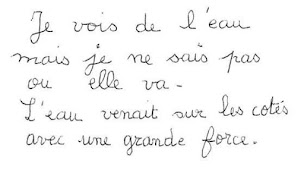 Je vois de l'eau
mais je ne sais pas
ou elle va-
L'eau venait sur les cotés
avec une grande force.